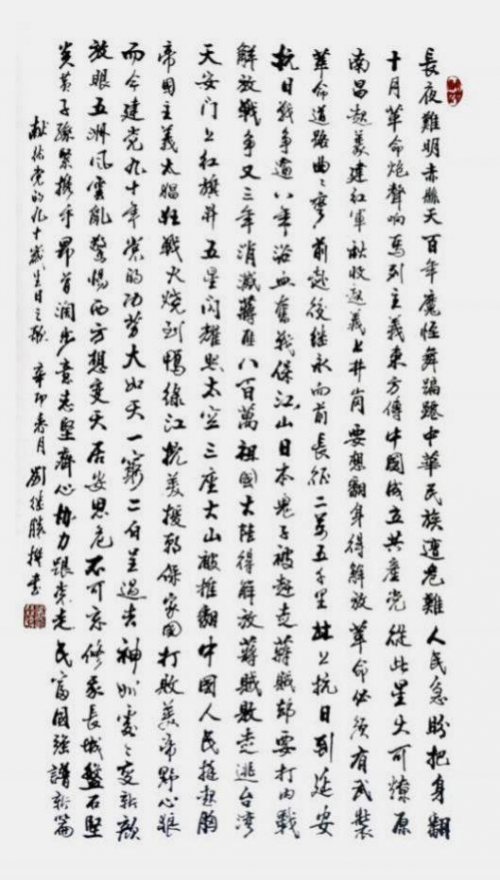 長夜難明赤縣天百年魔怪舞蹁躚中華民族遭危難人民急盼把身翻
十月革命炮聲响馬列主義東方傳中國成立共產党從此星火可燎原
南昌起義建紅軍秋收起義上井岗要想翻身得解放革命必須有武裝
革命道路曲々彎前赴後继永向前長征二万五千里林上抗日到延安
抗日戰争逾八年浴血奮戰保江山日本鬼子被赶走蔣賊却要打内戰
解放戰争又三年消滅蔣匪八百萬祖國大陸得解放蔣賊敗走逃台灣
天安门上红旗升五星闪耀照太空三座大山被推翻中國人民挺起胸
帝国主義太猖狂戰火烧到鴨绿江抗美援朝保家国打敗美帝野心狼
而今建党九十年党的功劳大如天一窮二白已過去神州處々变新颜
放眼五洲風雲亂警惕西方想变天居安思危不可忘修家長城盤石堅
炎黄子孫緊携手昂首润步意志堅齊心協力跟党走民富国强譜新篇
献给党的九十歲生日之歌 辛卯春月劉继勝撰書